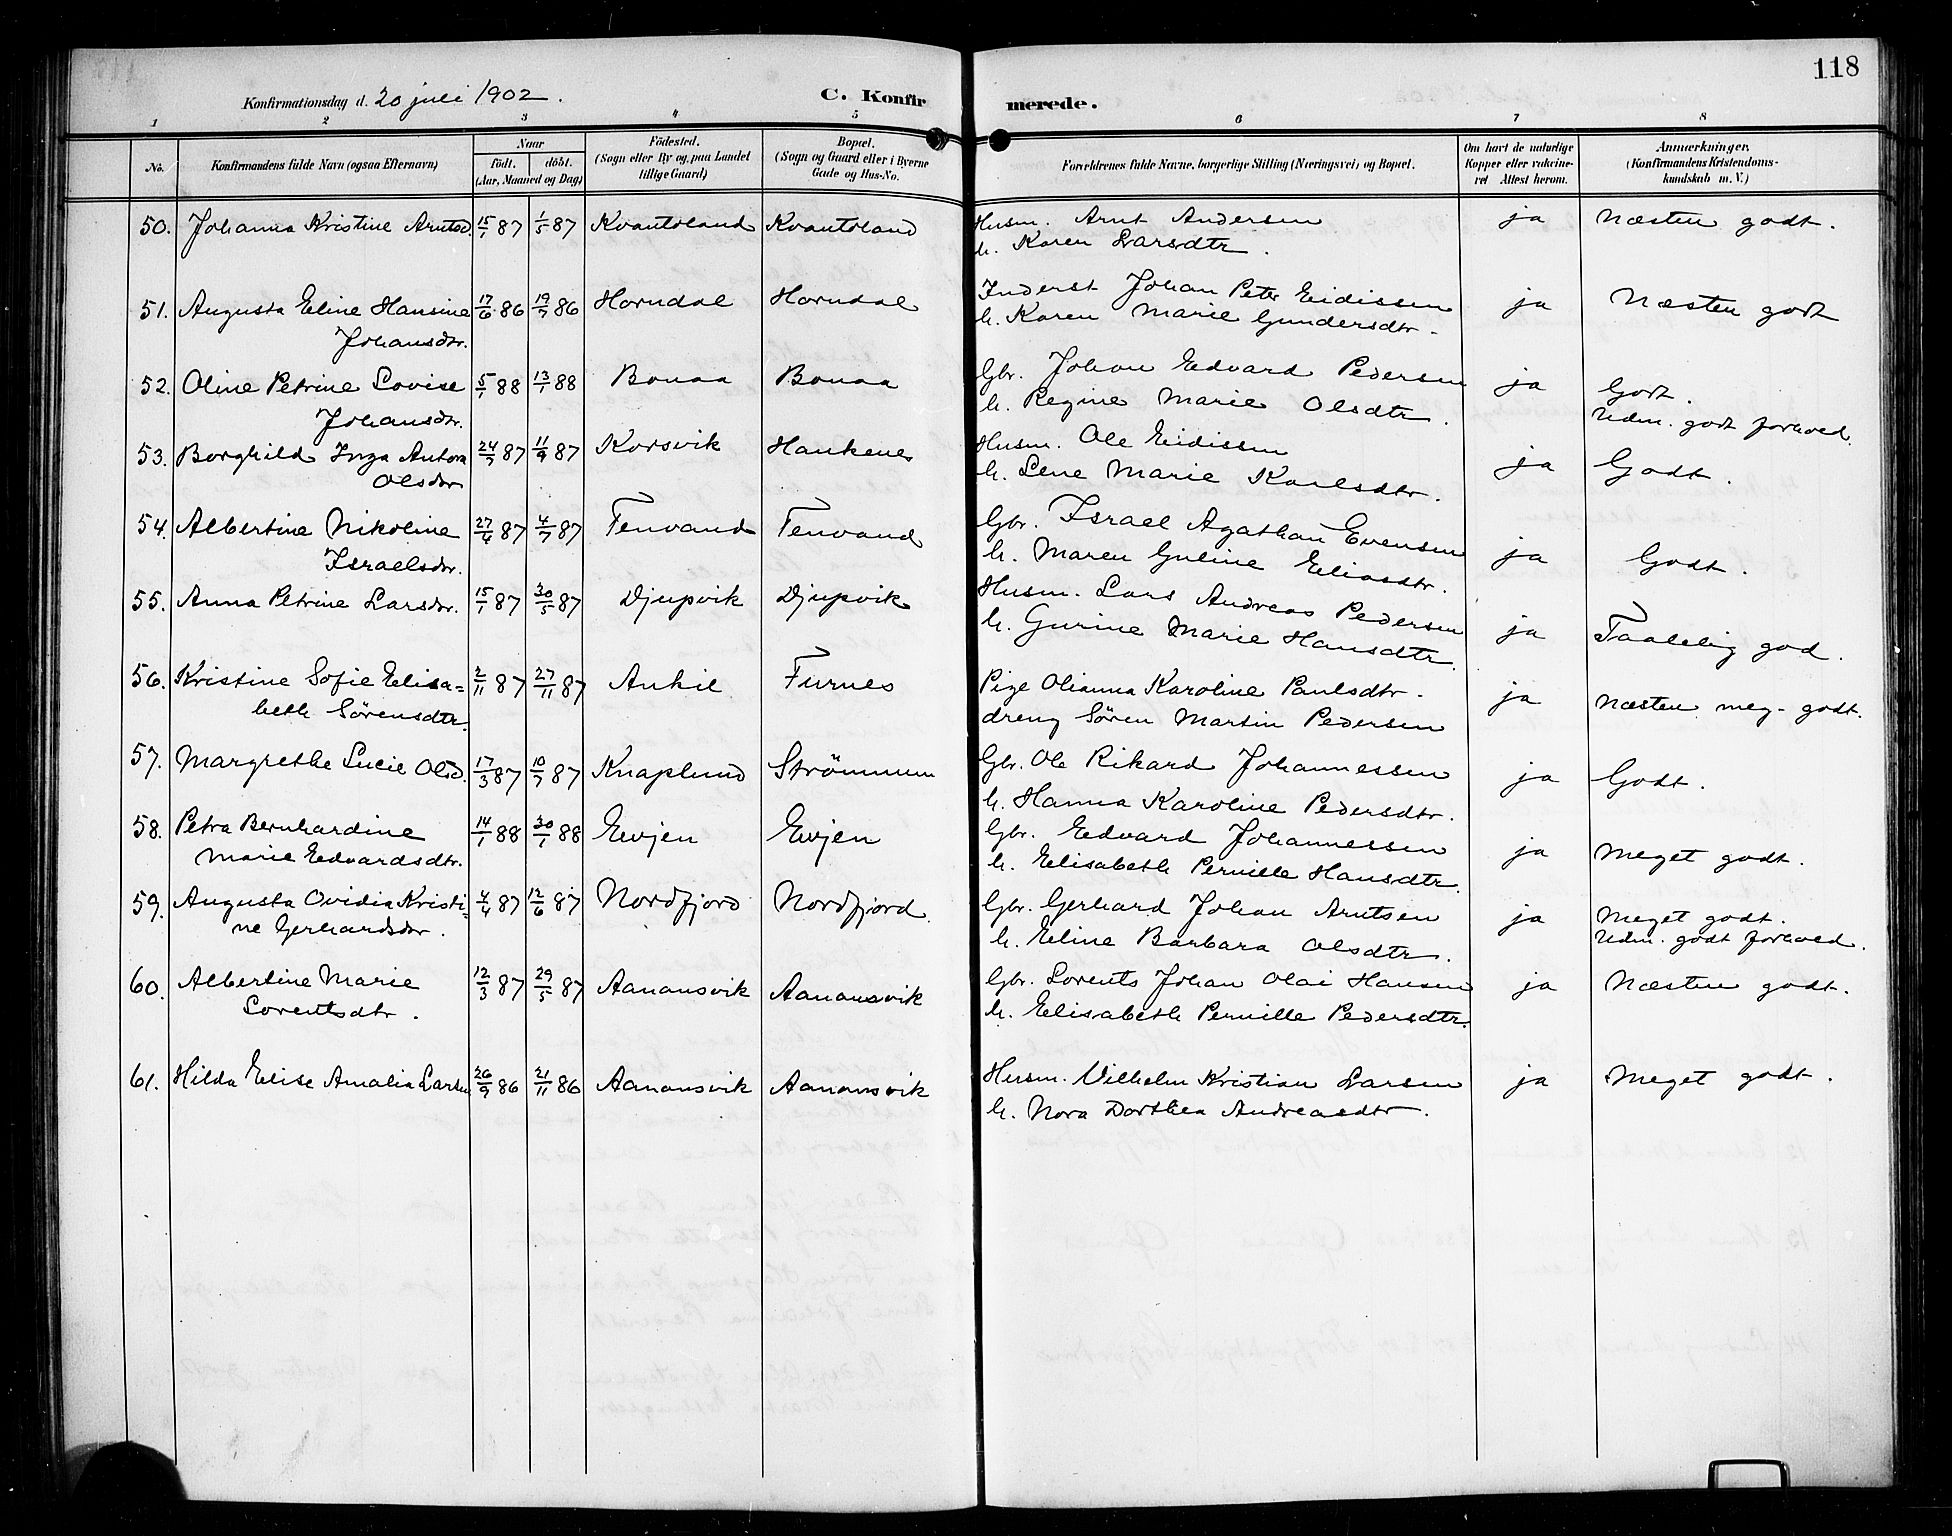 118
Konfirmationsdag d. 20 juli 1902.
C. Konfirmerede.
1 2 3 4 5 6 7 8
No. Konfirmandens fulde Navn (ogsaa Efternavn) Naar født. døbt. (Aar, Maaned og Dag) Fødested. (Sogn eller By og, paa Landet tillige Gaard) Bopæl. (Sogn og Gaard eller i Byerne Gade og Hus-No. Forældrenes fulde Navne, borgerlige Stilling (Næringsvei) og Bopæl. Om havt de naturlige Kopper eller vaccineret Attest herom. Anmærkninger. (Konfirmandens Kristendomskundskab m. V.)
50. Johanna Kristine Arntsd. 15/1 87 1/5 87 Kvantoland Kvantoland Husm. Arnt Andersen ja Næsten godt.
h. Karen Larsdtr.
51. Augusta Eline Hansine 17/6 86 19/7 86 Horndal Horndal Inderst Johan Peter Eidissen ja Næsten godt
Johansdtr. h. Karen Marie Gundersdtr.
52. Oline Petrine Lovise 5/1 88 13/1 88 Bonaa Bonaa Gbr. Johan Edvard Pedersen ja Godt.
Johansdtr. h. Regine Marie Olsdtr. Udm. godt forhold.
53. Borghild Inga Antora 24/7 87 11/9 87 Korsvik Haukenes Husm. Ole Eidissen ja Godt.
Olsdtr h. Lene Marie Karlsdtr.
54. Albertine Nikoline 27/4 87 4/7 87 Tenvand Tenvand Gbr. Israel Agathan Evensen ja Godt.
Israelsdtr. h. Maren Guline Eliasdtr.
55. Anna Petrine Larsdtr. 15/1 87 30/5 87 Djupvik Djupvik Husm. Lars Andreas Pedersen ja Taalelig god.
h. Gurine Marie Hansdtr.
56. Kristine Sofie Elisa= 2/11 87 27/11 87 Ankil Furnes Pige Olianna Karoline Paulsdtr. ja Næsten meg. godt.
beth Sörensdtr. dreng Søren Martin Pedersen
57. Margrethe Lucie Olsd. 17/3 87 10/7 87 Knaplund Strömmen Gbr. Ole Rikard Johannessen ja Godt.
h. Hanna Karoline Pedersdtr.
58. Petra Bernhardine 14/1 88 30/1 88 Evjen Evjen Gbr. Edvard Johannessen ja Meget godt.
Marie Edvardsdtr. h. Elisabeth Pernille Hansdtr.
59. Augusta Ovidia Kristi= 4/4 87 12/6 87 Nordfjord Nordfjord. Gbr. Gerhard Johan Arntsen ja Meget godt.
ne Gerhardsdtr. h. Eline Barbara Olsdtr. Udm. godt forhold.
60. Albertine Marie 12/3 87 29/5 87 Aanansvik Aanansvik Gbr. Lorents Johan Olai Hansen ja Næsten godt.
Lorentsdtr. h. Elisabeth Pernille Pedersdtr.
61. Hilda Elise Amalia Larsen 26/9 86 21/11 86 Aanansvik Aanansvik Husm. Vilhelm Kristian Larsen ja Meget godt.
h. Nora Dorthea Andreasdtr.